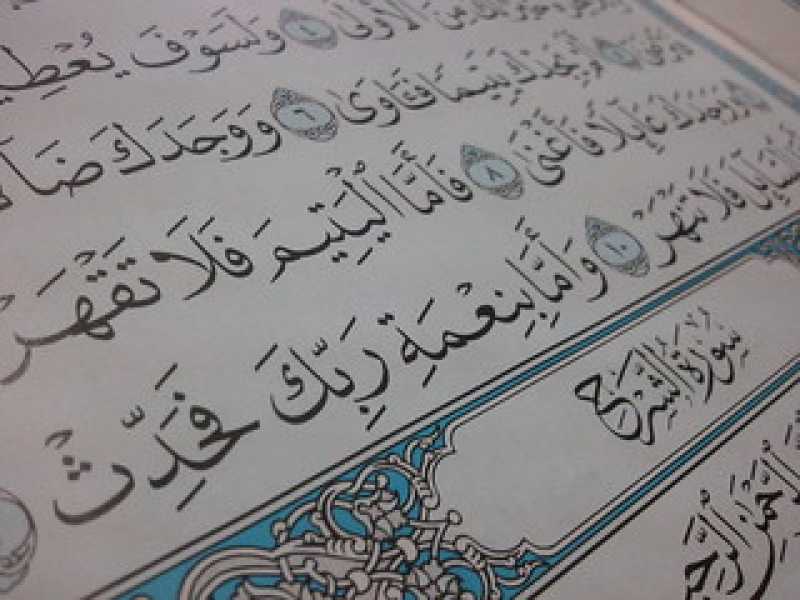 خَيْرٌ لَّكَ مِنَ الْأُولَىٰ ٤ وَلَسَوْفَ يُعْطِي
أَلَمْ يَجِدْكَ يَتِيمًا فَآوَىٰ ٦ وَوَجَدَكَ ضَا
وَوَجَدَكَ عَائِلًا فَأَغْنَىٰ ٨ فَأَمَّا الْيَتِيمَ فَلَا تَقْهَرْ
السَّائِلَ فَلَا تَنْهَرْ ١٠ وَأَمَّا بِنِعْمَةِ رَبِّكَ فَحَدِّثْ
سُورَةُ الشَّرْحِ
الرَّحْمَٰنِ الرَّحِيمِ